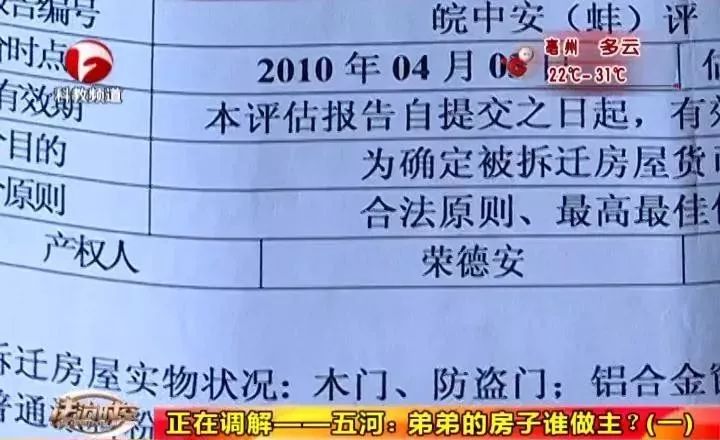 告编号
皖中安（蚌）评
时点
2010 年 04 月 0
科教频道
亳州 多云
22℃-31℃
有效期
本评估报告自提交之日起，有效
目的
为确定被拆迁房屋货
原则
合法原则、最高最佳
产权人
荣德安
拆迁房屋实物状况：木门、防盗门；铝合金
普通
粉
正在调解——五河：弟弟的房子谁做主？(一)